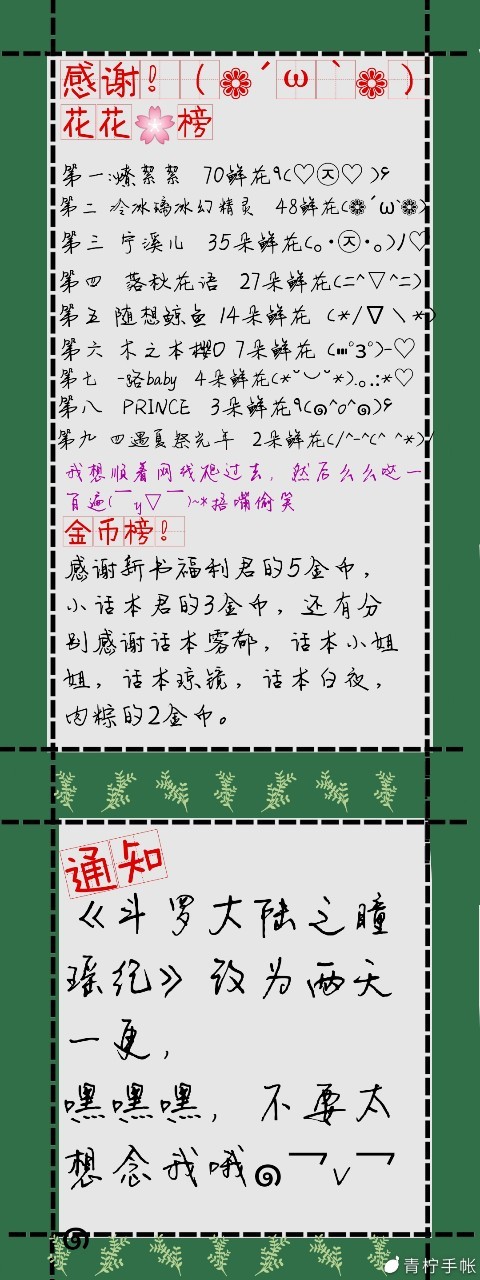 感谢！(❁´ω`❁)
花花🌸榜
第一:燎絮絮 70鲜花٩(♡㉨♡ )۶
第二 冷冰璃冰幻精灵 48鲜花(❁´ω`❁)
第三 宁溪儿 35朵鲜花(｡･㉨･｡)ﾉ♡
第四 落秋花语 27朵鲜花(=^▽^=)
第五 随想鲸鱼 14朵鲜花 (*/∇＼*)
第六 木之本樱0 7朵鲜花 (⑉°з°)-♡
第七 一路baby 4朵鲜花(*˘︶˘*).｡.:*♡
第八 PRINCE 3朵鲜花٩(๑^o^๑)۶
第九 四遇夏祭光年 2朵鲜花(/^-^(^ ^*)/
我想顺着网线爬过去，然后么么哒一
百遍(￣y▽￣)~*捂嘴偷笑
金币榜！
感谢新书福利君的5金币，
小话本君的3金币，还有分
别感谢话本雾都，话本小姐
姐，话本琼镜，话本白夜，
肉粽的2金币。
通知
《斗罗大陆之瞳
瑶纪》改为两天
一更，
嘿嘿嘿，不要太
想念我哦๑乛v乛
๑
青柠手帐